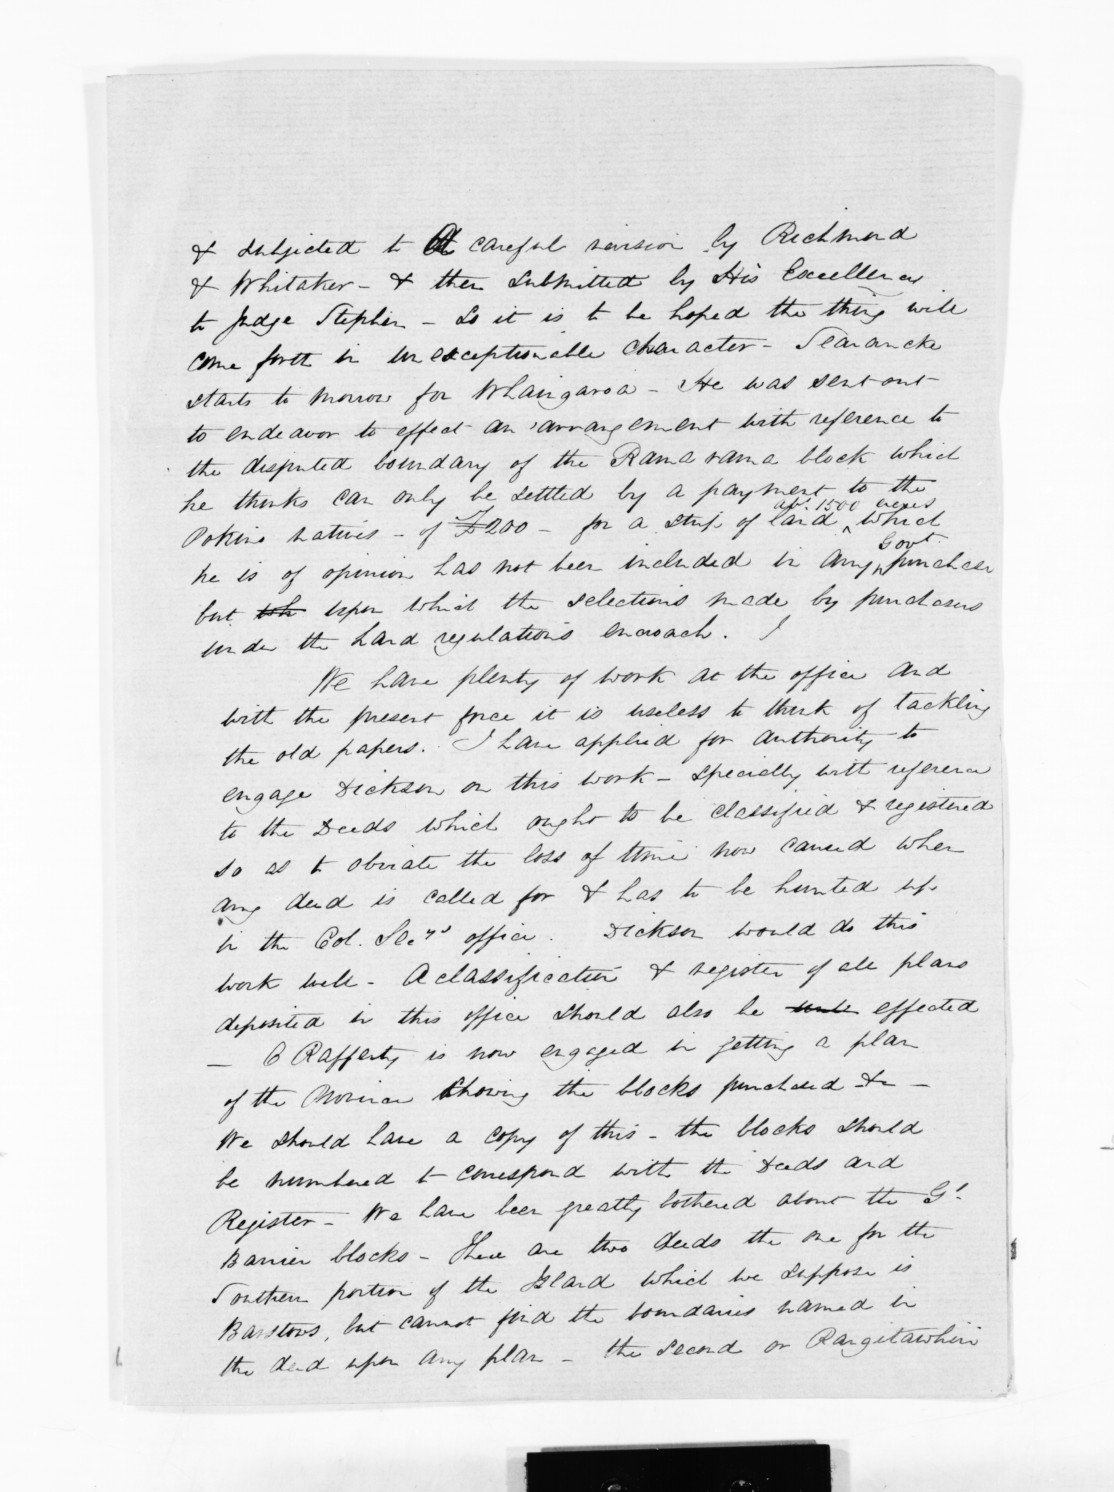 & subjected to a careful revision by Richmond
& Whitaker - & then submitted by His Excellency
to Judge Stephen - So it is to be hoped the thing will
come forth in unexceptionable character - Searancke
starts to morrow for Whaingaroa - He was sent out
to endeavor to effect an arrangement with reference to
the disputed boundary of the Ramarama block which
he thinks can only be settled by a payment to the
Pokino natives - of £200 - for a strip of land abt. 1500 acres which
he is of opinion has not been included in any Govt. purchase
but upon which the selections made by purchasers
under the land regulations encroach.
We have plenty of work at the office and
with the present force it is useless to think of tackling
the old papers. I have applied for authority to
engage Dickson on this work - specially with reference
to the Deeds which ought to be classified & registered
so as to obviate the loss of time now caused when
any deed is called for & has to be hunted up
in the Col. Secys office. Dickson would do this
work well - A classification & register of all plans
deposited in this office should also be effected
- O Rafferty is now engaged in getting a plan
of the Province showing the blocks purchased &c -
We should have a copy of this - the blocks should
be numbered to correspond with the Deeds and
Register - We have been greatly bothered about the Gt.
Barrier blocks - There are two deeds the one for the
Southern portion of the Island which we suppose is
Barstows, but cannot find the boundaries named in
the deed upon any plan - the second or Rangitawhiri